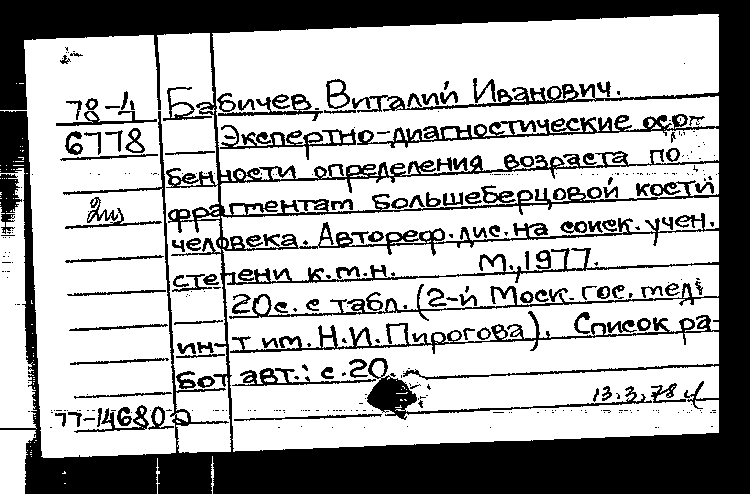 78-4 Бабичев, Виталий Иванович.
6778 Экспертно-диагностические осо-
бенности определения возраста по
фрагментам большеберцовой кости
человека. Автореф. дис. на соиск. учен.
степени к.м.н. М., 1977.
20с. с табл. (2-й Моск. гос. мед.
ин-т им. Н.И. Пирогова). Список ра-
бот авт.: с. 20
13.3.78
77-14680